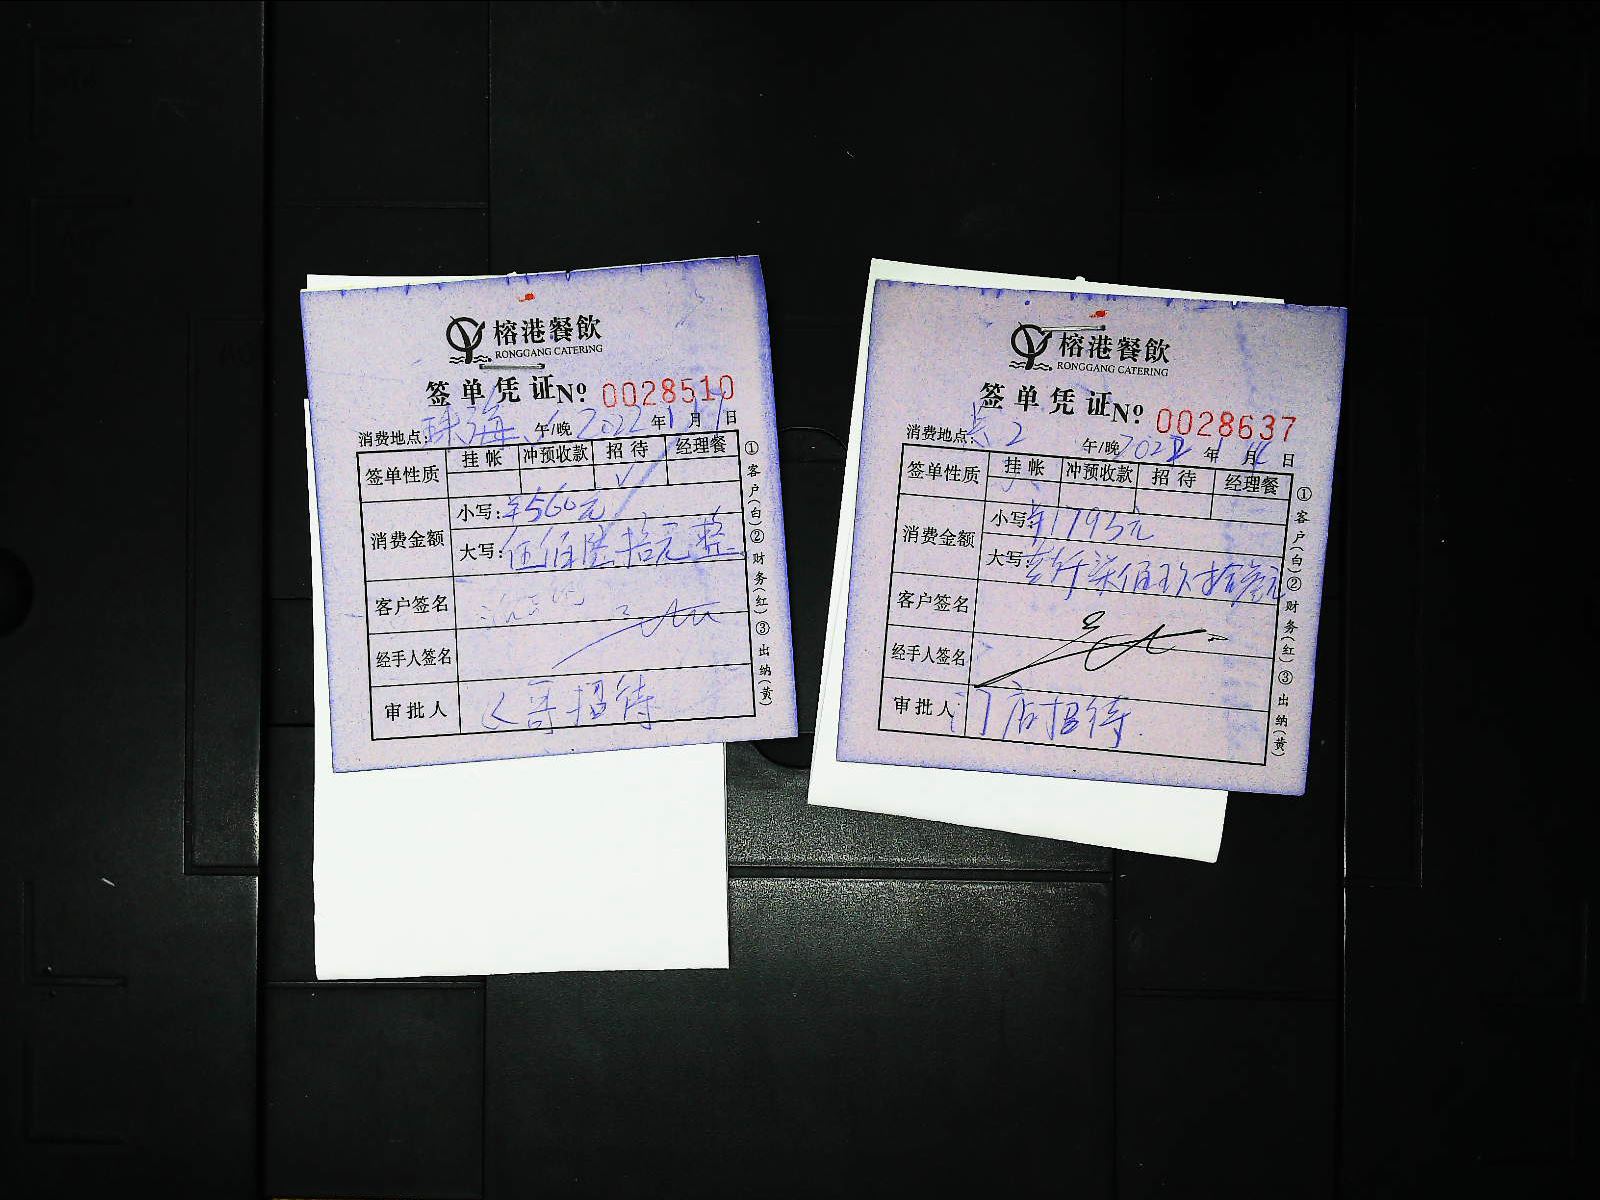 榕港餐飲
RONGGANG CATERING
签单凭证 Nº 0028510
消费地点: 珠海 午/晚 2022 年 1 月 日
签单性质 挂帐 冲预收款 招待 经理餐
✓
消费金额
小写: ¥560元
大写: 伍佰陆拾元整
客户签名
经手人签名
审批人 哥招待
①客户(白)②财务(红)③出纳(黄)
榕港餐飲
RONGGANG CATERING
签单凭证 Nº 0028637
消费地点: 2 午/晚 2022 年 1 月 日
签单性质 挂帐 冲预收款 招待 经理餐
消费金额
小写: ¥1793元
大写: 壹仟柒佰玖拾叁元
客户签名
经手人签名
审批人 门店招待
①客户(白)②财务(红)③出纳(黄)